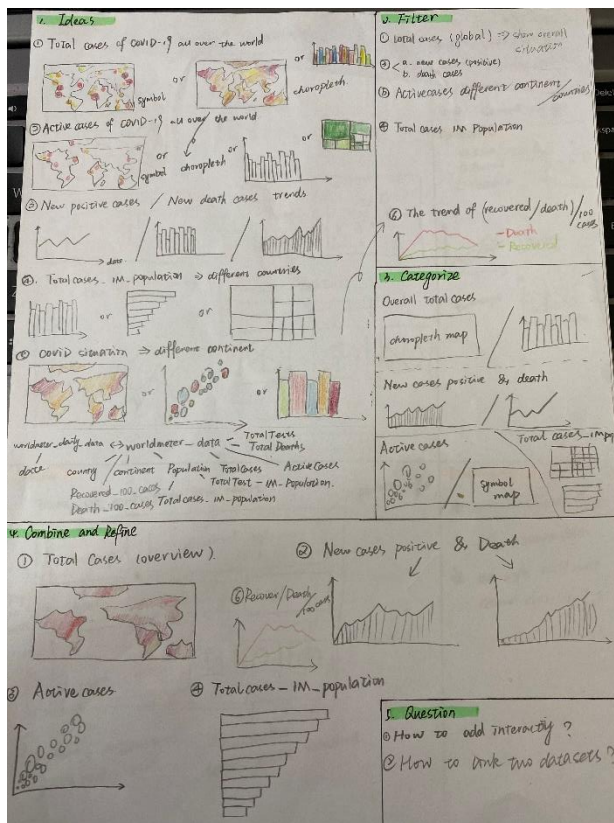 1. Ideas
① Total cases of COVID-19 all over the world
symbol
or
choropleth
or
② Active cases of COVID-19 all over the world
symbol
or
choropleth
or
or
③ New positive cases / New death cases trends
date
/
/
④. Total cases_1M_population ⇒ different countries
or
or
⑤ COVID situation ⇒ different continent
or
or
worldmeter_daily_data ↔ worldmeter_data
Total Tests
Total Deaths
Active Cases
date
country / continent Population Total Cases
Total Test - 1M_Population.
Recovered_100_cases
Death_100_cases Total cases_1M_population
2. Filter
① total cases (global) ⇒ show overall
situation
a. new cases (positive)
b. death cases
Active cases different continent
/ countries
④ Total cases 1M Population
⑥ The trend of (recovered/death)/100
cases
- Death
- Recovered
3. Categorize
Overall Total cases
choropleth map
/
New cases positive & death
/
Active cases
Total cases_1M
/
symbol
map
4. Combine and Refine
① Total Cases (overview).
② New cases positive & Death
⑥ Recover/Death
/100 cases
③ Active cases
④ Total cases_1M_population
5. Question
① How to add interactly?
② How to link two datasets?